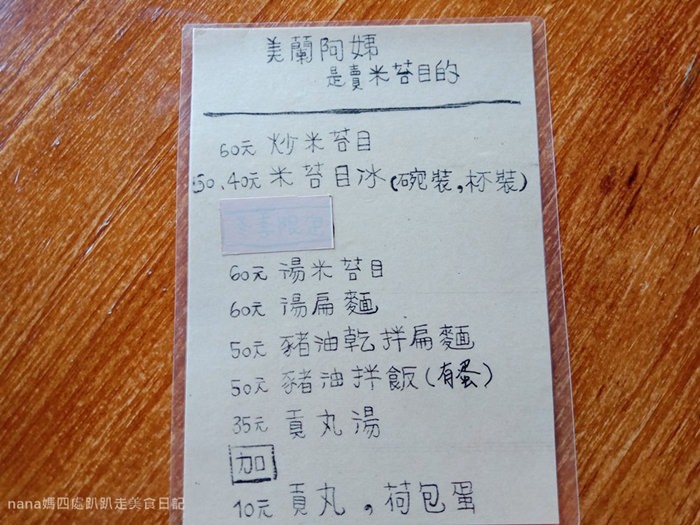 美蘭阿娣
是賣米苔目的
60元 炒米苔目
50、40元 米苔目冰(碗裝,杯裝)
60元 湯米苔目
60元 湯扁麵
50元 豬油乾拌扁麵
50元 豬油拌飯(有蛋)
35元 貢丸湯
加
10元 貢丸,荷包蛋
nana媽四處趴趴走美食日記